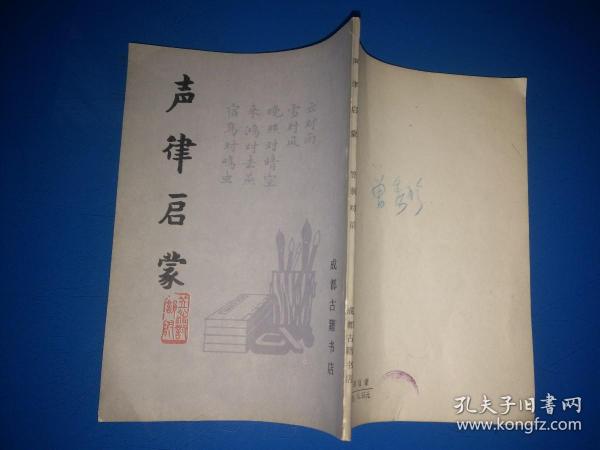 声律启蒙
云对雨
雪对风
晚照对晴空
来鸿对去燕
宿鸟对鸣虫
成都古籍书店
声律启蒙 笠翁对韵
成都古籍书店
孔夫子旧书网
www.kongfz.com